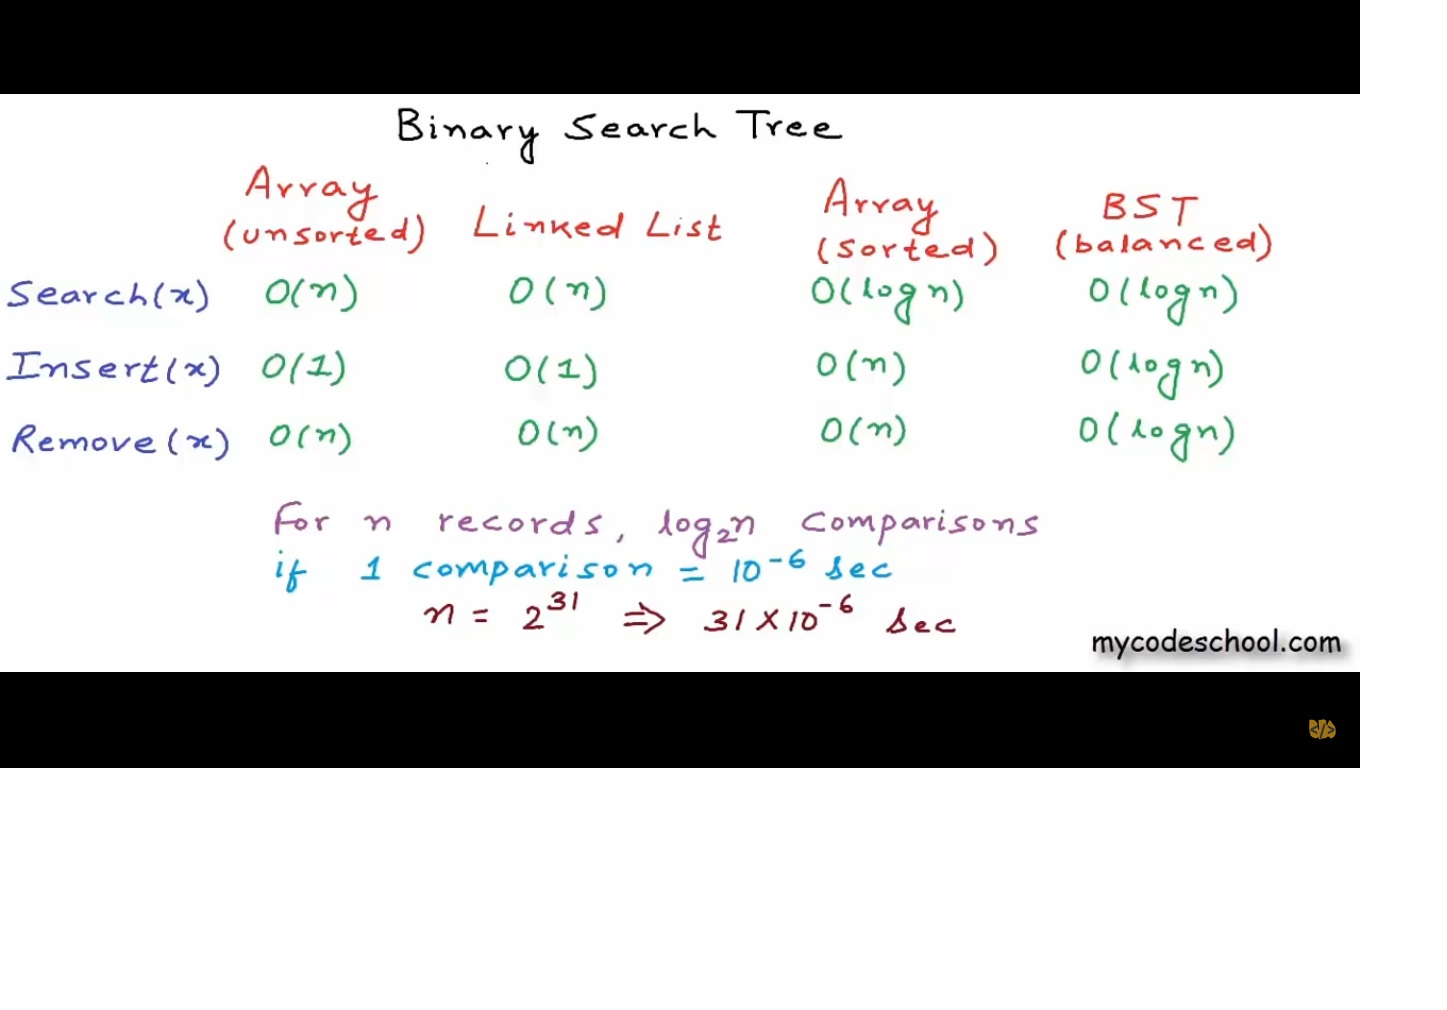 Binary Search Tree
Array (unsorted) Linked List Array (sorted) BST (balanced)
Search(x) O(n) O(n) O(log n) O(log n)
Insert(x) O(1) O(1) O(n) O(log n)
Remove(x) O(n) O(n) O(n) O(log n)
For n records, log₂n comparisons
if 1 comparison = 10⁻⁶ sec
n = 2³¹ ⇒ 31 × 10⁻⁶ sec
mycodeschool.com